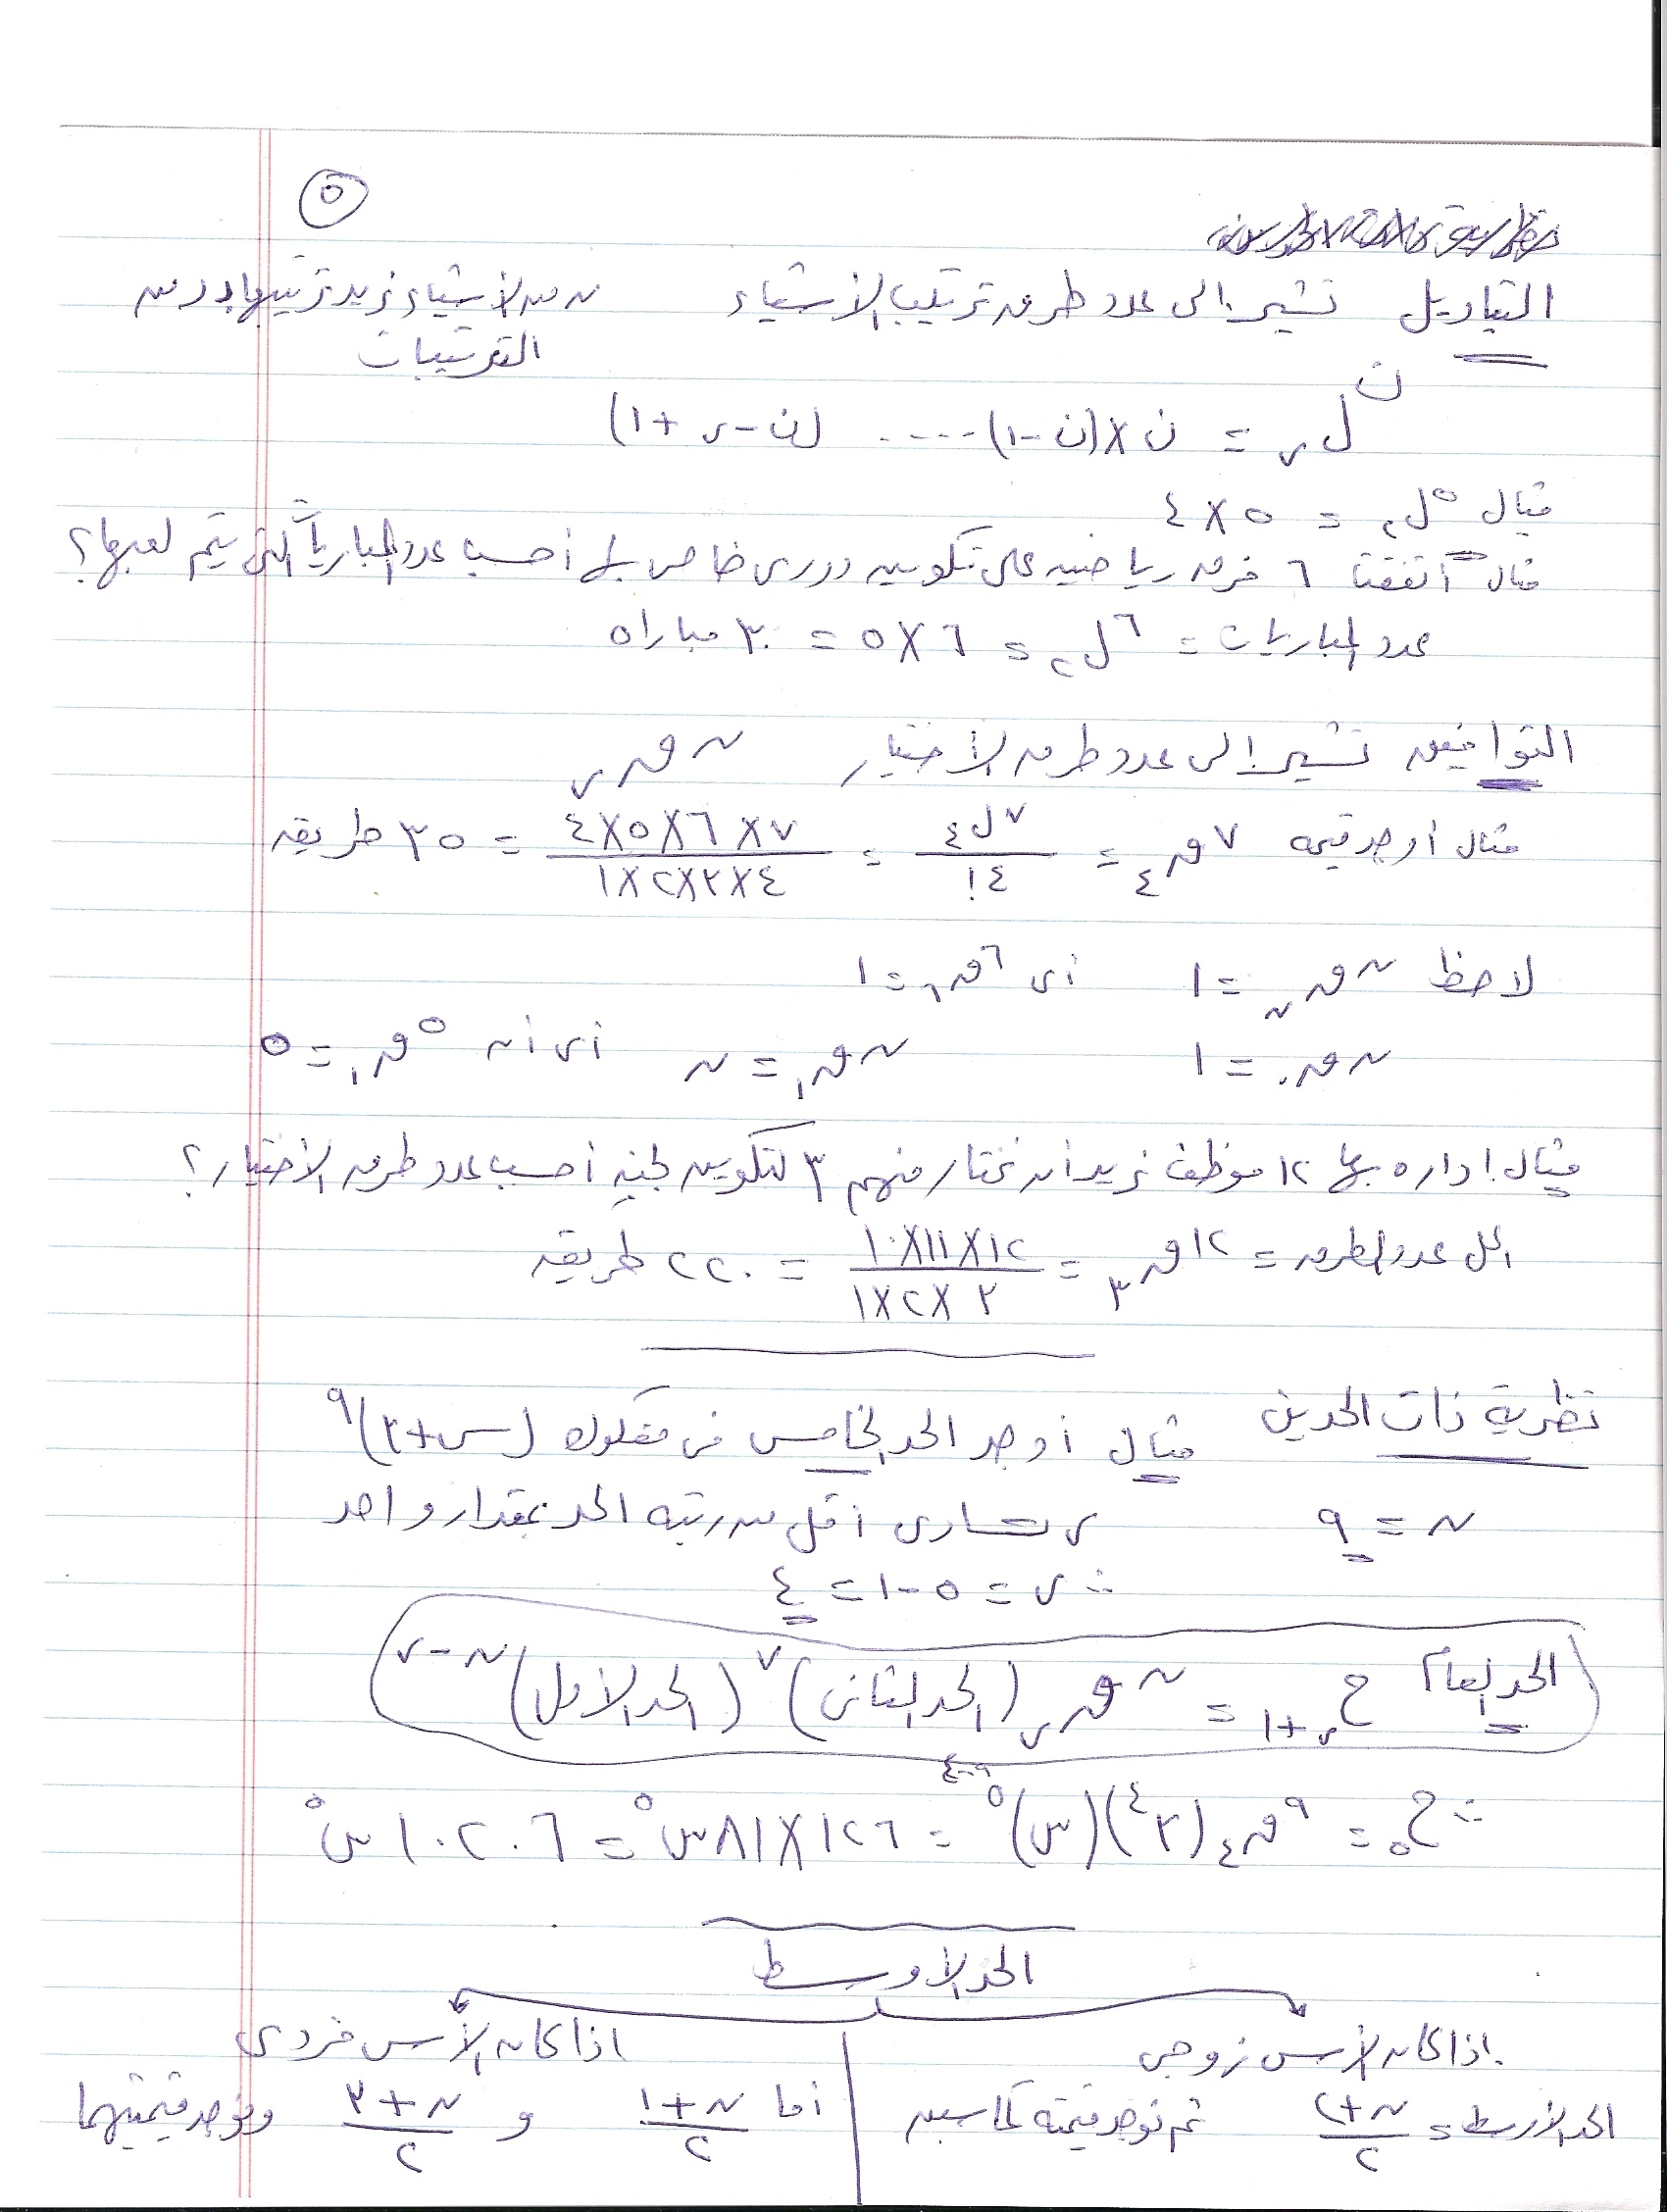 ٥
التباديل تشير إلى عدد طرق ترتيب الأشياء ن من الأشياء نريد ترتيبها بـ ر من
الترتيبات
ن ل ر = ن × (ن - ١) .... (ن - ر + ١)
مثال ٥ل٢ = ٥ × ٤
مثال اتفقت ٦ فرق رياضية على تكوين دورى خاص بها أحسب عدد المباريات التى يتم لعبها؟
عدد المباريات = ٦ل٢ = ٦ × ٥ = ٣٠ مباراه
التوافيق تشير إلى عدد طرق الأختيار ن ق ر
مثال أوجد قيمه ٧ق٤ = ٧ل٤ / ٤! = ٧×٦×٥×٤ / ٤×٣×٢×١ = ٣٥ طريقه
لاحظ نقن = ١ أى ٦ق٦ = ١
نق٠ = ١ نق١ = ن أى أن ٥ق١ = ٥
مثال إداره بها ١٢ موظف نريد أن نختار منهم ٣ لتكوين لجنه أحسب عدد طرق الأختيار؟
الحل عدد الطرق = ١٢ق٣ = ١٢×١١×١٠ / ٣×٢×١ = ٢٢٠ طريقه
نظرية ذات الحدين مثال أوجد الحد الخامس فى مفكوك (س+٣)٩
ن = ٩ ر تساوى أقل من رتبه الحد بمقدار واحد
∴ ر = ٥ - ١ = ٤
الحد العام ح ر+١ = ن ق ر (الحد الثانى)ر (الحد الأول)ن-ر
∴ ح٥ = ٩ق٤ (٣)٤ (س)٥ ٩-٤ = ١٢٦ × ٨١ س٥ = ١٠٢٠٦ س٥
الحد الأوسط
إذا كان الأس زوجى اذا كان الأس فردى
الحد الأوسط = ن+٢ / ٢ ثم نوجد قيمته كما سبق أما ن+١ / ٢ و ن+٣ / ٢ ونوجد قيمتيهما